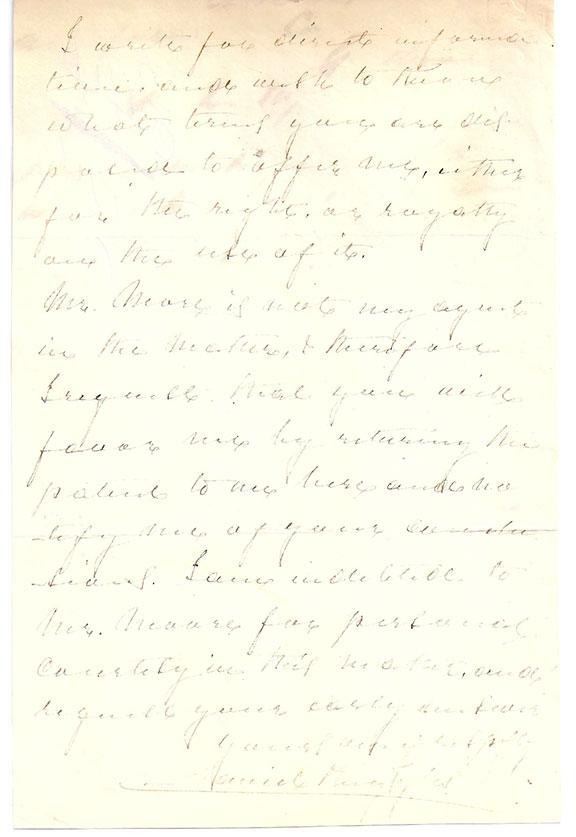 I write for direct informa
tion, and wish to know
what terms you are dis
posed to offer me, either
for the right, or royalty
on the use of it.
Mr. Moore is not my agent
in the matter, & therefore
I request that you will
favor me by returning the
patent to me here and no
tify me of your conclu
sions. I am indebted to
Mr. Moore for personal
courtesy in this matter, and
request your early answer
Yours
Daniel